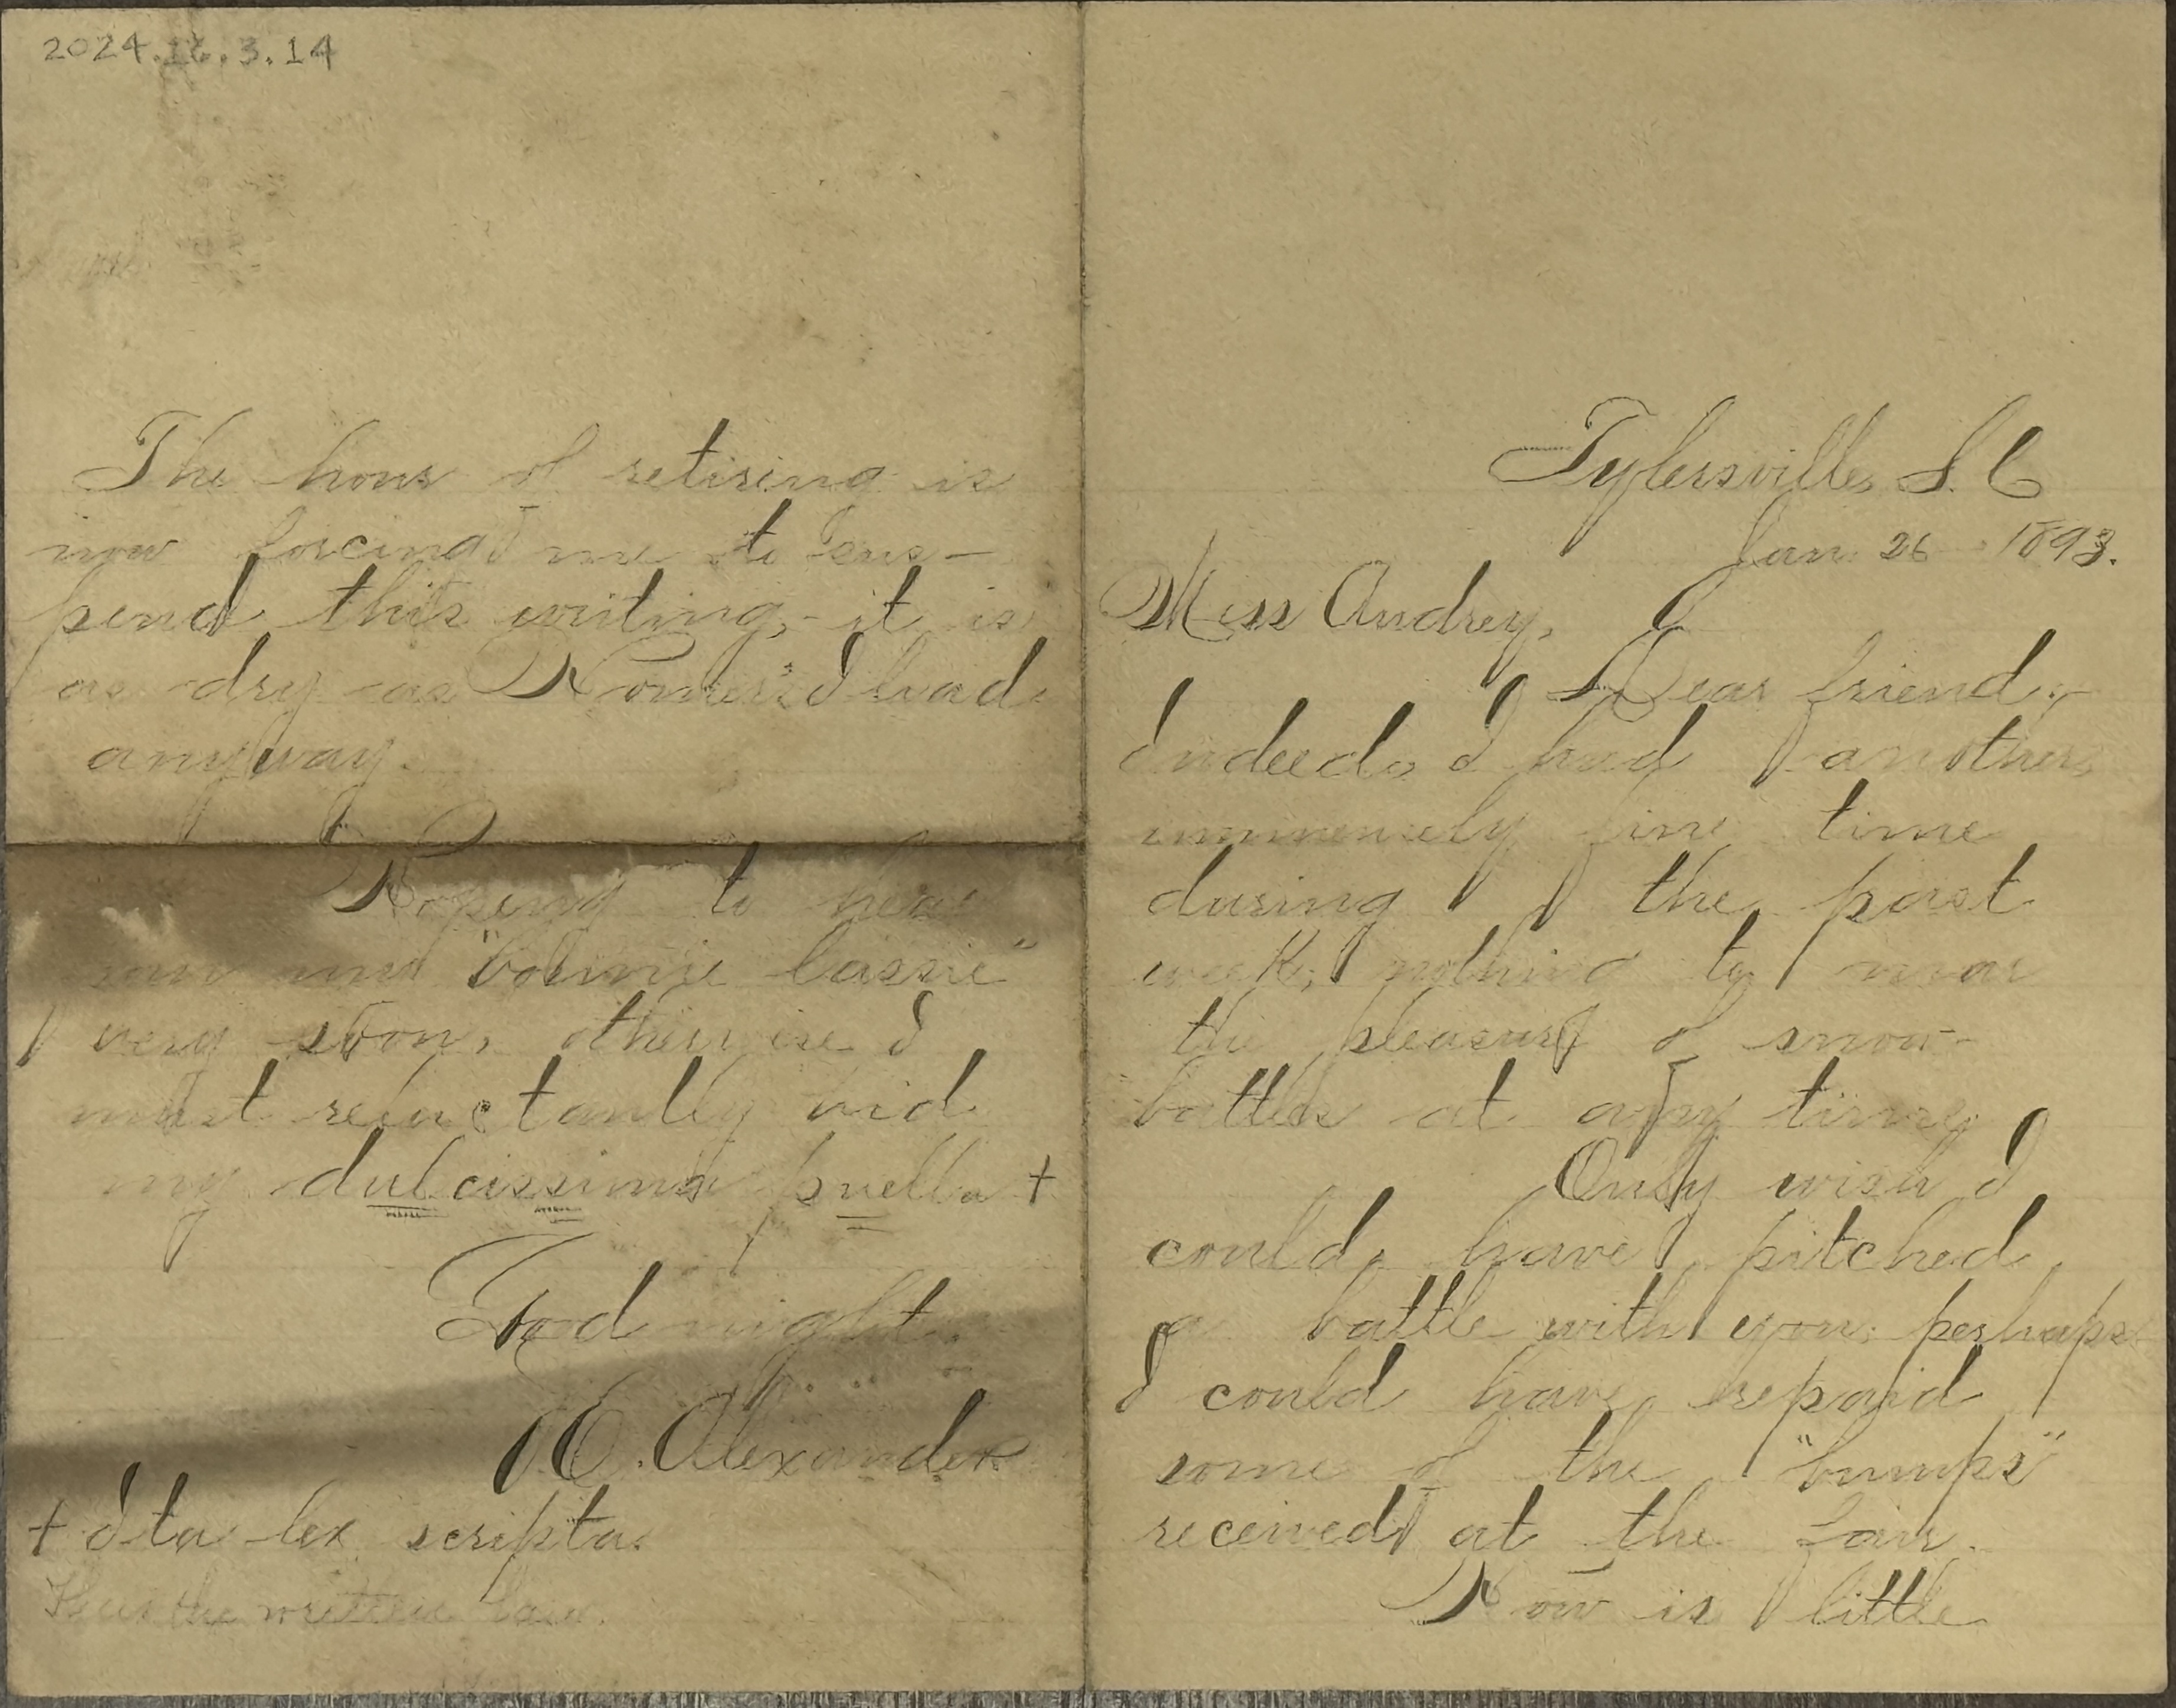 2024.16.3.14
Tylersville, S. C
Jan. 26 1893.
Miss Audrey,
Dear friend:-
Indeed, I had another
immensely fine time
during the past
week, nothing to mar
the pleasure of snow-
battles at any time.
Only wish I
could have pitched
a battle with you. perhaps
I could have repaid
some of the "bumps"
received at the fair.
How is little
The hour of retiring is
now forcing me to sus-
pend this writing,- it is
as dry as Homer's Iliad
anyway.
Hoping to hear
my "bonnie lassie"
very soon, otherwise I
must reluctantly bid
my dulcissima puella +
Good night.
C. Alexander
+ Ita lex scripta.
Thus the written law.